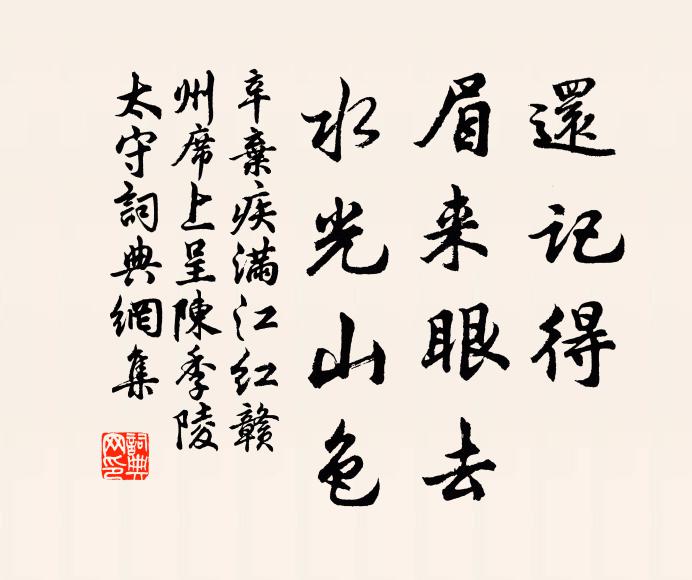 還記得
眉来眼去
水光山色
辛棄疾满江红贛
州席上呈陳季陵
太守詞典網集
詞典
网印